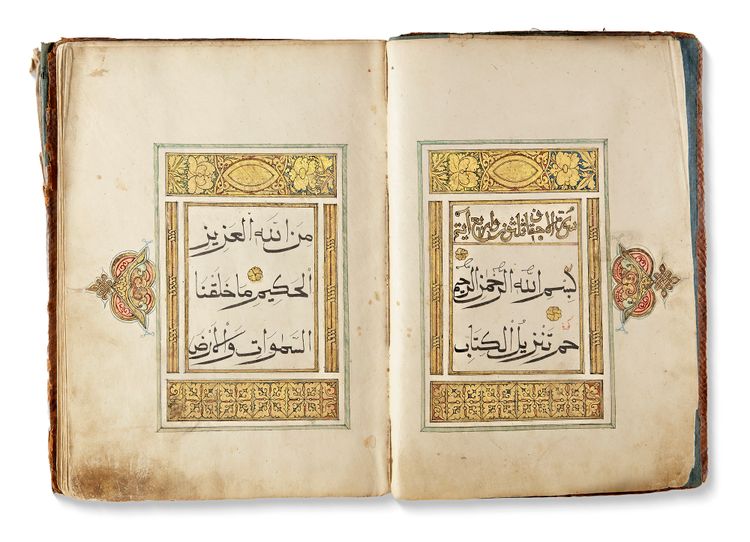 سورة الاحقاف
بسم الله الرحمن الرحيم
حم تنزيل الكتاب
من الله العزيز
الحكيم ما خلقنا
السموات والأرض